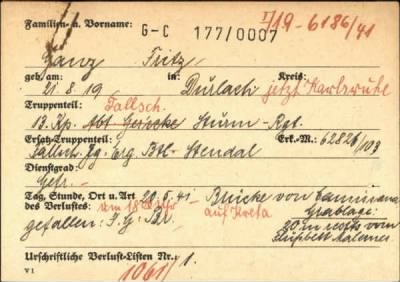 I/19-6186/41
Familien- u. Vorname: G-C 177/0007
Ganz Fritz
geb/am: in: Kreis:
21. 8. 19 Durlach jetzt Karlsruhe
Truppenteil: Fallsch.
13. Kp. Abt. Gericke Sturm-Rgt.
Ersatz-Truppenteil: Erk.-M.: 62826/103
Fallsch. Jg. Erg. Btl. Stendal
Dienstgrad:
Gefr.
Tag, Stunde, Ort u. Art 20.5.41 - Brücke von
des Verlustes: um Uhr auf Kreta Grablage:
gefallen: 20 m rechts vom
Flußbett
Urschriftliche Verlust-Listen Nr.:
1061/1.
V 1